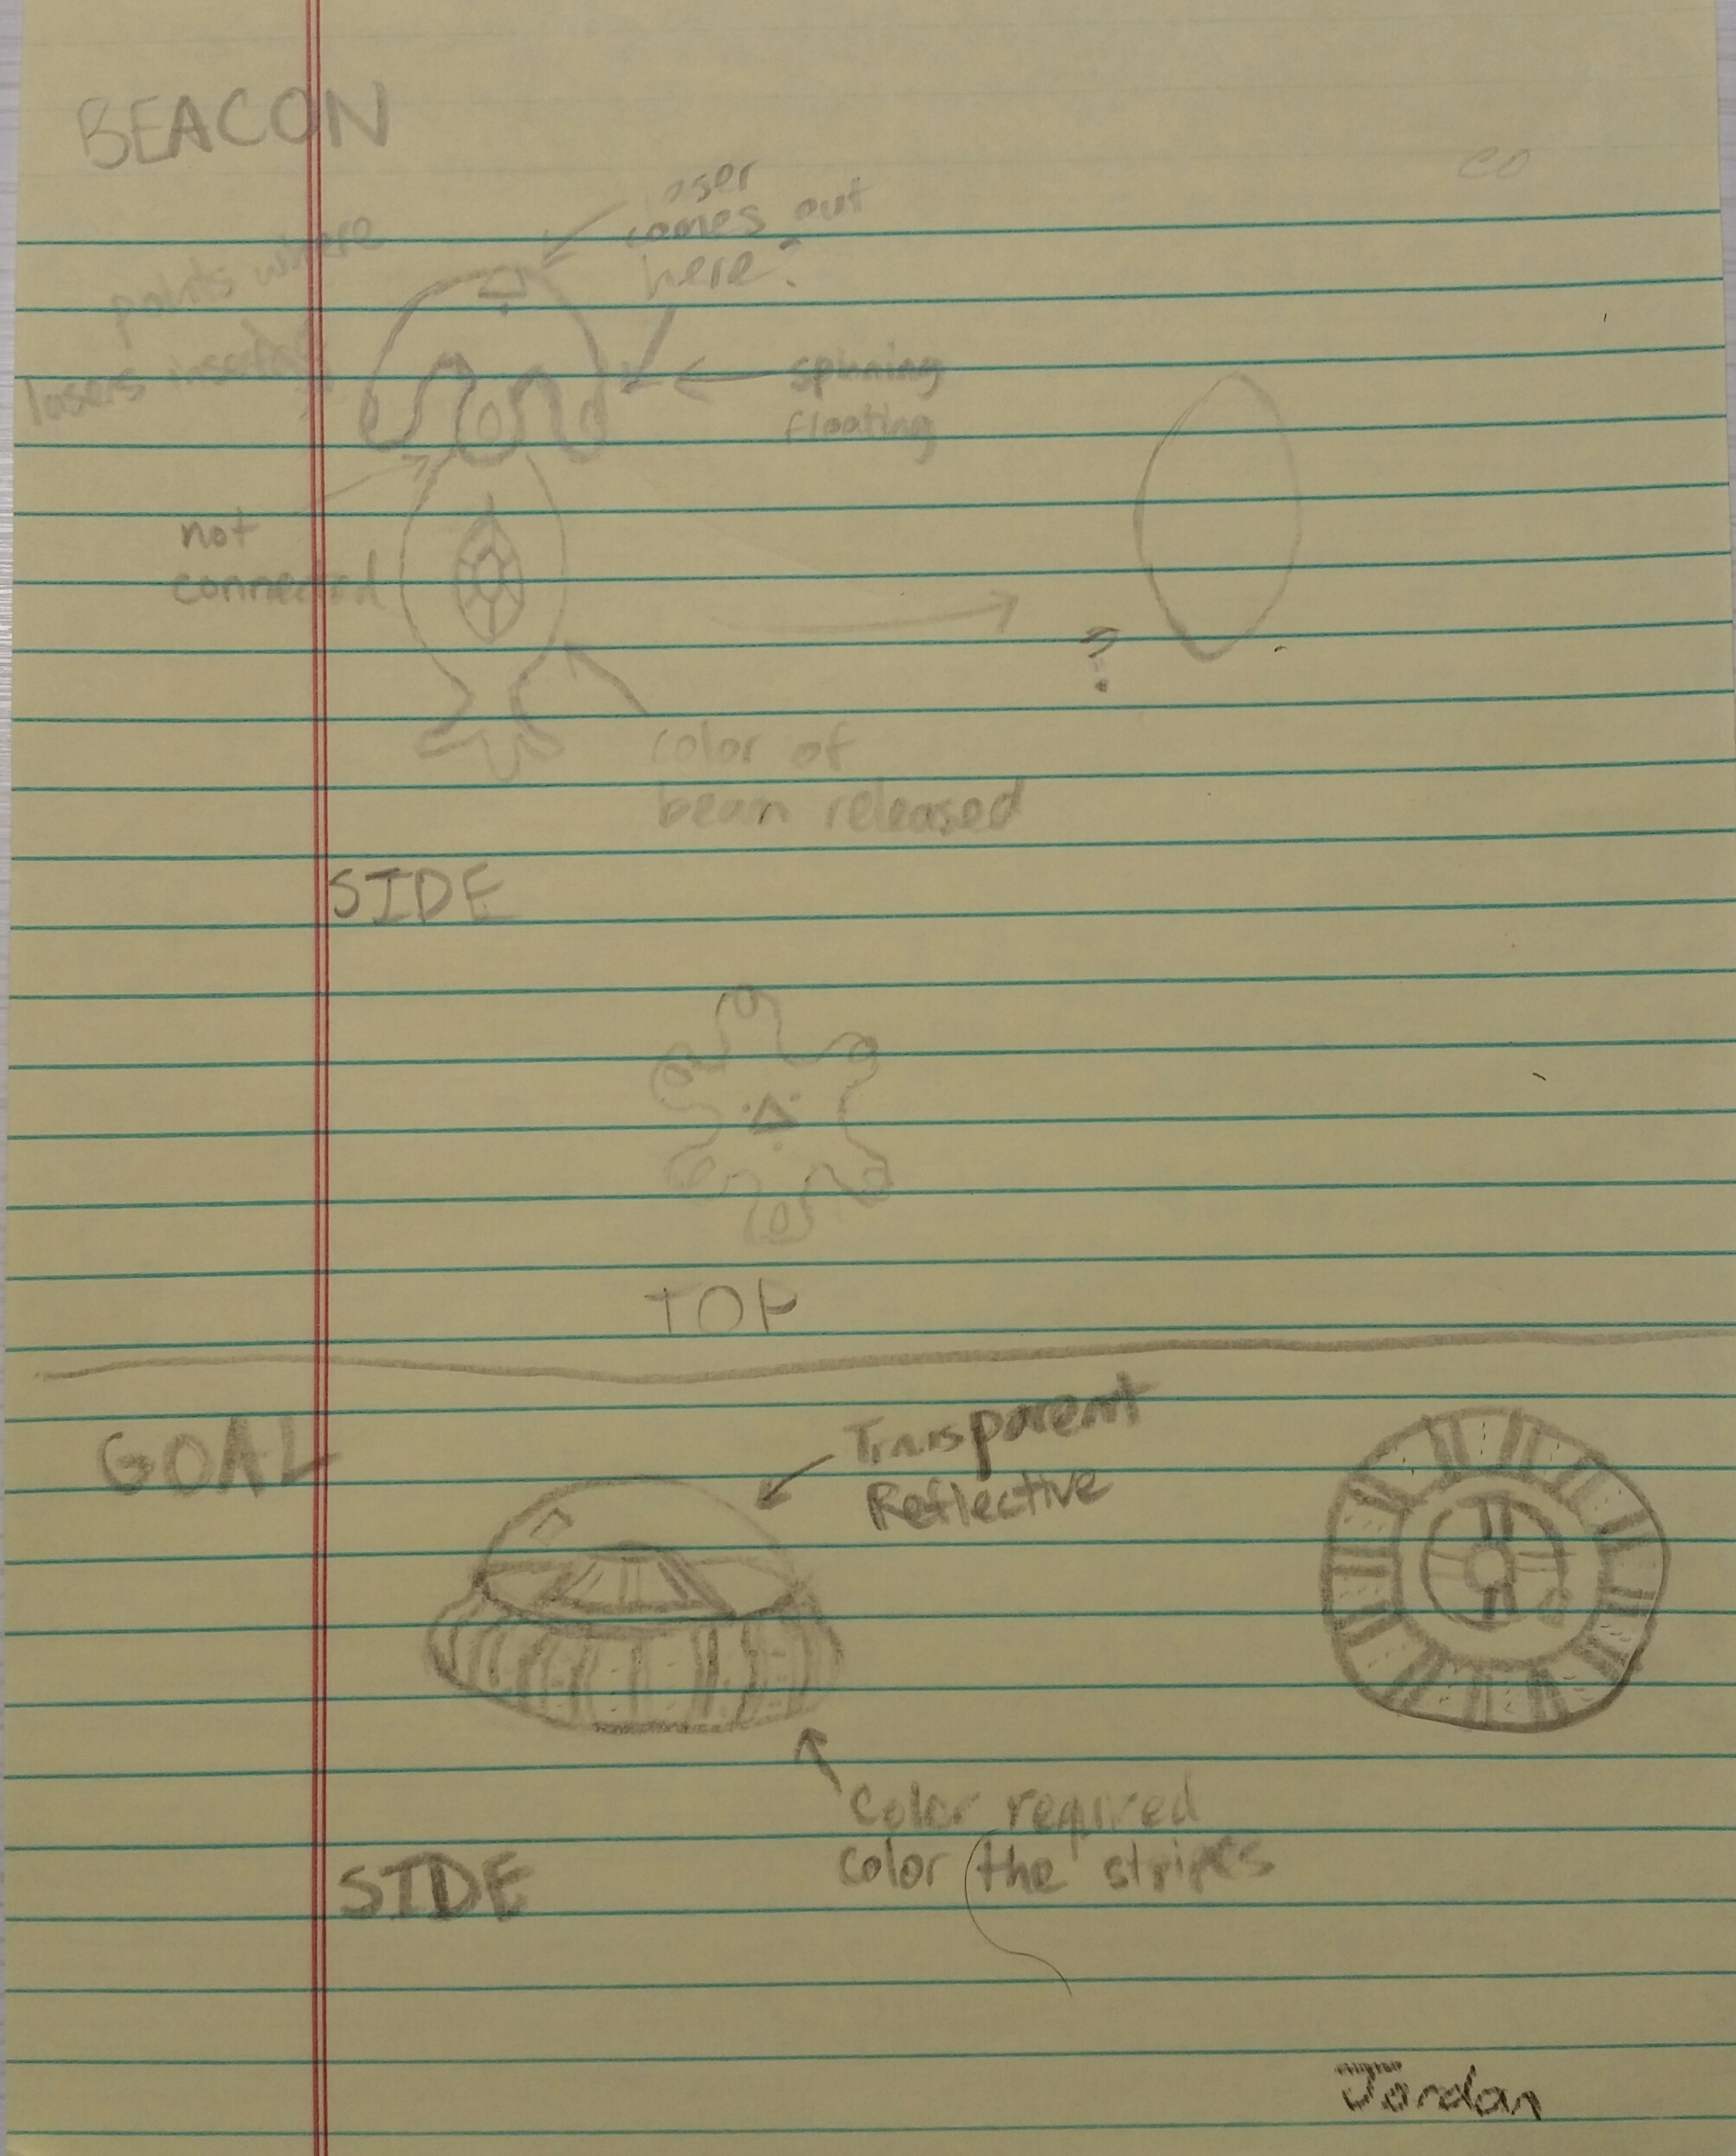 BEACON
co
laser
comes out
here?
points where
lasers
spinning
floating
not
connected
?
color of
beam released
SIDE
TOP
GOAL
Transparent
Reflective
Color required
color the stripes
SIDE
Jordan